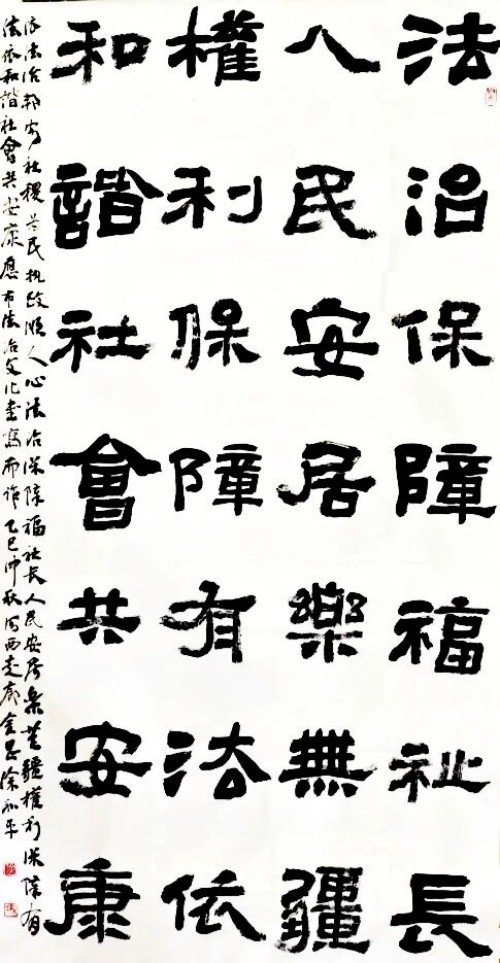 法治保障福祉長
人民安居樂無疆
權利保障有法依
和諧社會共安康
依法治邦安社稷为民执政顺人心法治保障福祉长人民安居樂無疆權利保障有
法依和諧社會共安康應市法治文化書寫而作乙巳仲秋河西走廊金昌徐和平